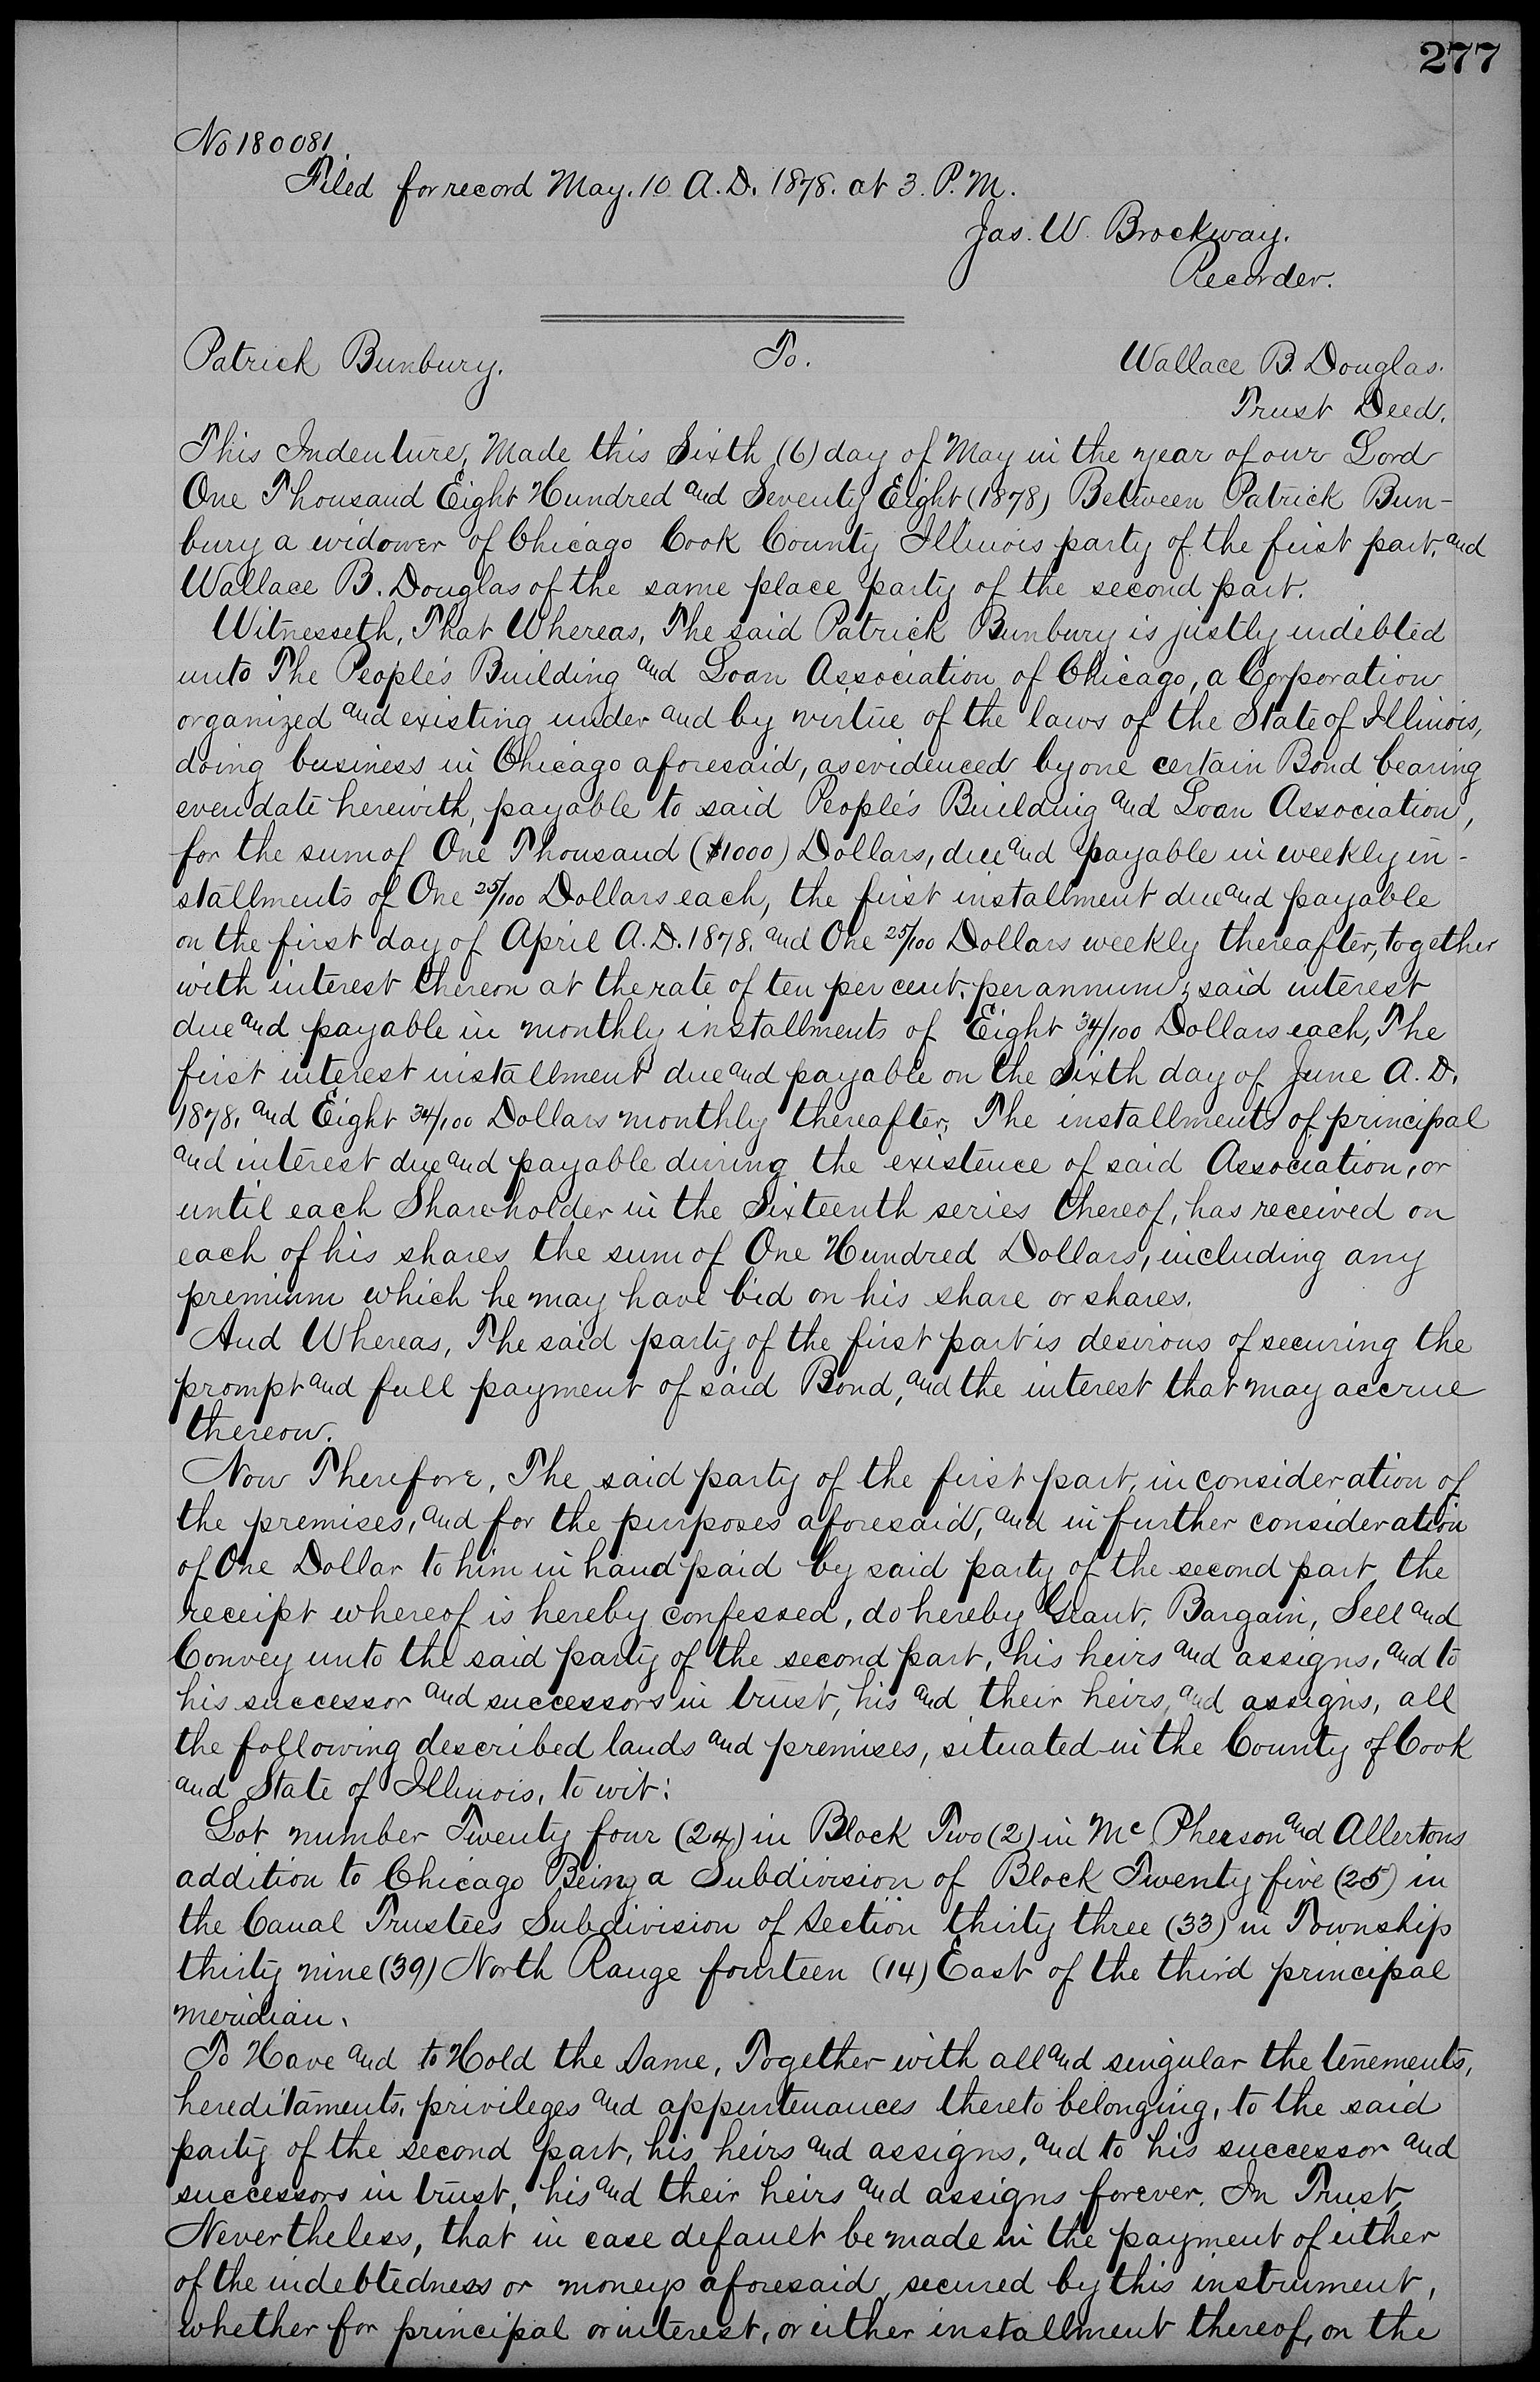 277
No 180081
Filed for record May. 10 A.D. 1878. at 3. P.M.
Jas. W. Brockway.
Recorder.
Patrick Bunbury. To. Wallace B. Douglas.
Trust Deed.
This Indenture, Made this Sixth (6) day of May in the year of our Lord
One Thousand Eight Hundred and Seventy Eight (1878) Between Patrick Bun-
bury a widower of Chicago Cook County Illinois party of the first part, and
Wallace B. Douglas of the same place party of the second part.
Witnesseth, That Whereas, The said Patrick Bunbury is justly indebted
unto The People's Building and Loan Association of Chicago, a Corporation
organized and existing under and by virtue of the laws of the State of Illinois,
doing business in Chicago aforesaid, as evidenced by one certain Bond bearing
even date herewith, payable to said People's Building and Loan Association,
for the sum of One Thousand ($1000) Dollars, due and payable in weekly in-
stallments of One 25/100 Dollars each, the first installment due and payable
on the first day of April A.D. 1878. and One 25/100 Dollars weekly thereafter, together
with interest thereon at the rate of ten per cent. per annum; said interest
due and payable in monthly installments of Eight 34/100 Dollars each, The
first interest installment due and payable on the Sixth day of June A.D.
1878. and Eight 34/100 Dollars monthly thereafter; The installments of principal
and interest due and payable during the existence of said Association, or
until each Shareholder in the Sixteenth series thereof, has received on
each of his shares the sum of One Hundred Dollars, including any
premium which he may have bid on his share or shares.
And Whereas, The said party of the first part is desirous of securing the
prompt and full payment of said Bond, and the interest that may accrue
thereon.
Now Therefore, The said party of the first part, in consideration of
the premises, and for the purposes aforesaid, and in further consideration
of One Dollar to him in hand paid by said party of the second part, the
receipt whereof is hereby confessed, do hereby Grant, Bargain, Sell and
Convey unto the said party of the second part, his heirs and assigns, and to
his successor and successors in trust, his and their heirs, and assigns, all
the following described lands and premises, situated in the County of Cook
and State of Illinois, to wit:
Lot number Twenty four (24) in Block Two (2) in Mc Pherson and Allertons
addition to Chicago Being a Subdivision of Block Twenty five (25) in
the Canal Trustees Subdivision of Section thirty three (33) in Township
thirty nine (39) North Range fourteen (14) East of the third principal
meridian.
To Have and to Hold the Same, Together with all and singular the tenements,
hereditaments, privileges and appurtenances thereto belonging, to the said
party of the second part, his heirs and assigns, and to his successor and
successors in trust, his and their heirs and assigns forever. In Trust,
Nevertheless, that in case default be made in the payment of either
of the indebtedness or moneys aforesaid, secured by this instrument,
whether for principal or interest, or either installment thereof, on the